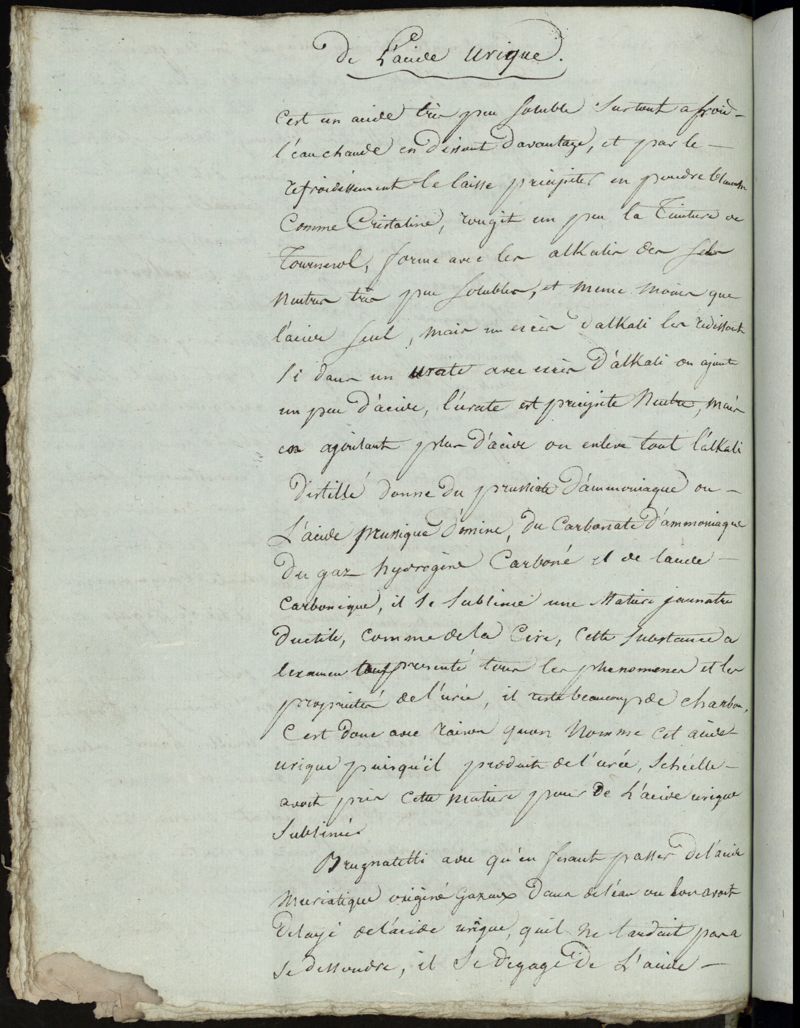 De L'acide urique.
C'est un acide très peu soluble surtout a froid
l'eau chaude en dissout davantage, et par le
refroidissement le laisse précipiter en poudre blanche
Comme Cristaline, rougit un peu la Tinture de
Tournesol, forme avec les alkalis des sels
Neutres très peu solubles, et meme moins que
l'acide seul, mais un excès d'alkali les redissout
Si dans un urate avec excès d'alkali on ajoute
un peu d'acide, l'urate est précipité Neutre, mais
en ajoutant plus d'acide on enleve tout l'alkali
Distillé donne du prussiate d'ammoniaque ou
L'acide prussique d'emine, du Carbonate d'ammoniaque
Du gaz hydrogène Carboné et de l'acide
Carbonique, il se sublime une Matiere jaunatre
Ductile, comme de la Cire, cette substance a
l'examen presenté tous les phenomenes et les
propriétés de l'urée, il reste beaucoup de charbon,
C'est donc avec raison quon Nomme cet acide
urique puisqu'il produit de l'urée, Schéelle
avoit pris cette matiere pour De L'acide urique
Sublimé
Brugnatelli a vu qu'en fesant passer de l'acide
Muriatique oxigéné gazeux dans de l'eau ou lon avoit
Delayé de l'acide urique, quil ne tardoit pas a
se dissoudre, il se degage De L'acide